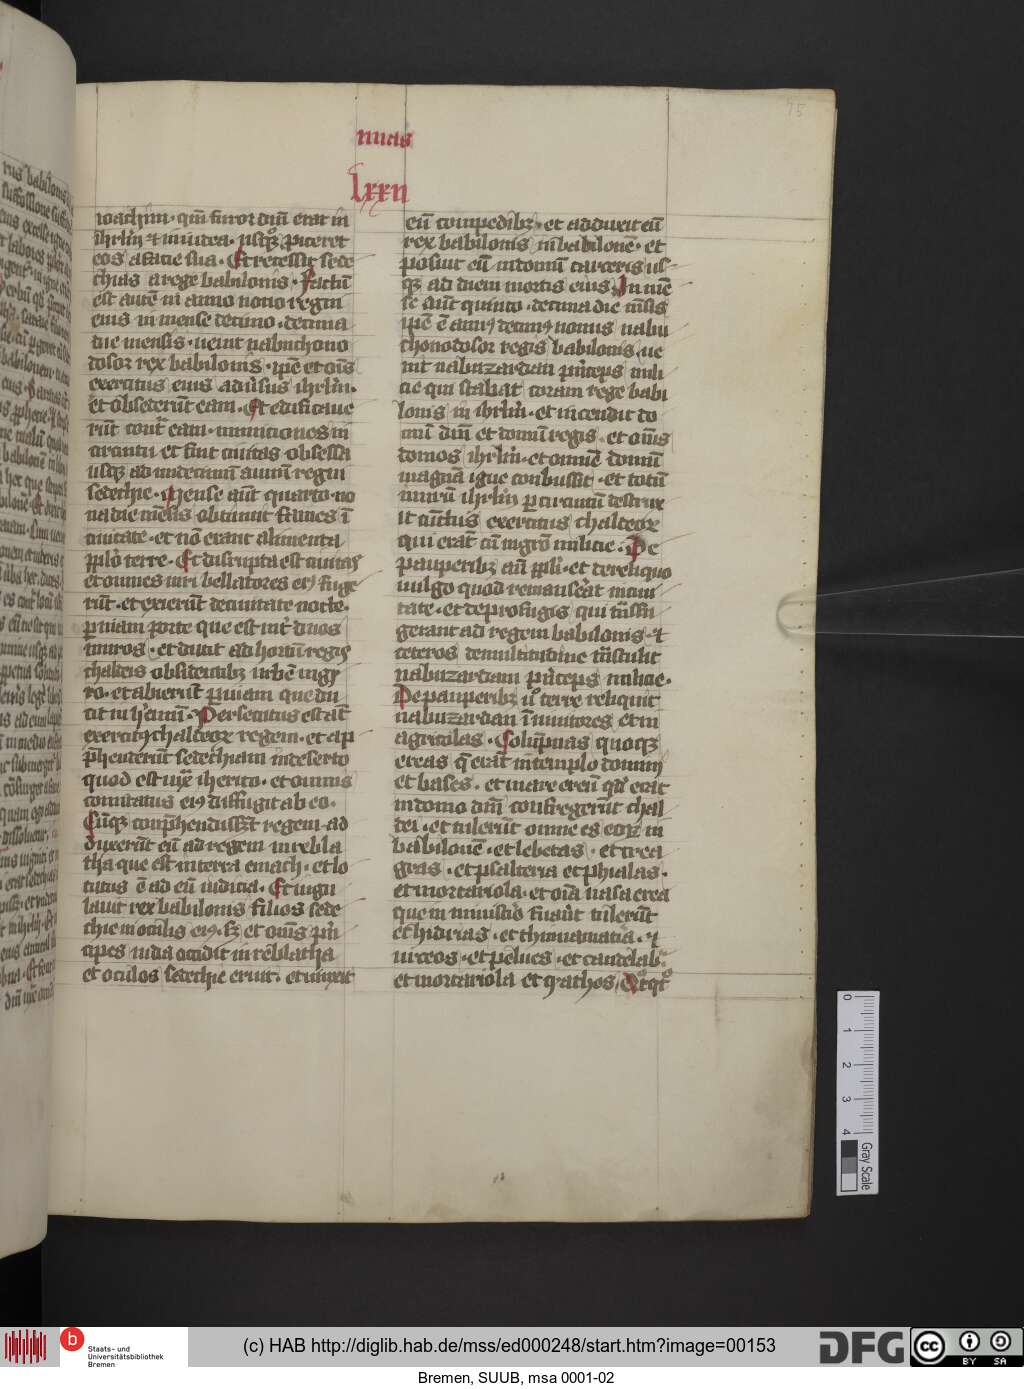 75
mias
lxxii
ioachim · qm̄ furor dnī erat in
ihrl̄m ⁊ in iudea · usqꝫ ꝓiceret
eos a facie sua · Et recessit sede
chias a rege babilonis · Factū
est autē in anno nono regni
eius in mense decimo · decima
die mensis · uenit nabuchono
dosor rex babilonis · ipē et oīs
exercitus eius adūsus ihrl̄m ·
et obsederūt eam · Et edificaue
rūt cont̄ eam · municiones in
circuitu et fuit ciuitas obsessa
usqꝫ ad undecimū annum regni
sedechie · Mense aūt quarto · no
na die mēsis obtinuit fames ī
ciuitate · et nō erant alimenta
pplo terre · Et disrupta est ciuitas
et omnes uiri bellatores eiꝰ fuge
rūt · et exierūt de ciuitate nocte ·
ꝑ uiam porte que est int̄ duos
muros · et ducit ad hortū regis
chaldeis obsidentibꝫ urbē in gy
ro · et abierūt ꝑ uiam que du
cit in h'emū · Persecutus est aūt
exercitꝰ chaldeoꝝ regem · et ap
p̄henderūt sedechiam in deserto
quod est iux̄ iherico · et omnis
comitatus eiꝰ diffugit ab eo ·
Cūqꝫ conp̄hendissēt regem · ad
duxerūt eū ad regem in rebla
tha que est in terra emach · et lo
cutus ē ad eū iudicia · Et iugu
lauit rex babilonis filios sede
chie in oculis eiꝰ · sꝫ et om̄s pn̄
cipes iuda occidit in reblatha
et oculos sedechie eruit · et uinxit
eū compedibꝫ · et adduxit eū
rex babilonis in babilonē · et
posuit eū in domū carceris us
qꝫ ad diem mortis eius · In mē
se aūt quinto · decima die mēsis
ipē ē annꝰ decimꝰ nonus nabu
chonodosor regis babilonis · ue
nit nabuzardan pn̄ceps mili
cie qui stabat coram rege babi
lonis in ihrl̄m · et incendit do
mū dnī et domū regis · et om̄s
domos ihrl̄m · et omnē domū
magnā igne conbussit · et totū
murū ihrl̄m ꝑ circuitū destrux
it cūctus exercitus chaldeoꝝ
qui erat cū mgrō milicie · De
pauperibꝫ aūt ppl̄i · et de reliquo
uulgo quod remanserat in ciui
tate · et de profugis qui tn̄sfu
gerant ad regem babilonis · ⁊
ceteros de multitudine tn̄stulit
nabuzardam pn̄ceps milicie ·
De pauperibꝫ uͦ terre reliquit
nabuzardan ī uinitores et in
agricolas · Columpnas quoqꝫ
ereas q̄ erāt in templo domini
et bases · et mare ereū qd' erat
in domo dnī confregerūt chal
dei · et tulerūt omne es eoꝝ in
babilonē · et lebetas · et crea
gras · et psalteria et phialas ·
et mortariola · et oīa uasa erea
que in ministrio fuāūt tulerūt
et hidrias · et thimiamatia · ⁊
urceos · et pelues · et candelab̄
et mortariola et cyathos
(c) HAB http://diglib.hab.de/mss/ed000248/start.htm?image=00153
Bremen, SUUB, msa 0001-02
b Staats- und
Universitätsbibliothek
Bremen
DFG
cc BY SA
0 1 2 3 4
Gray Scale